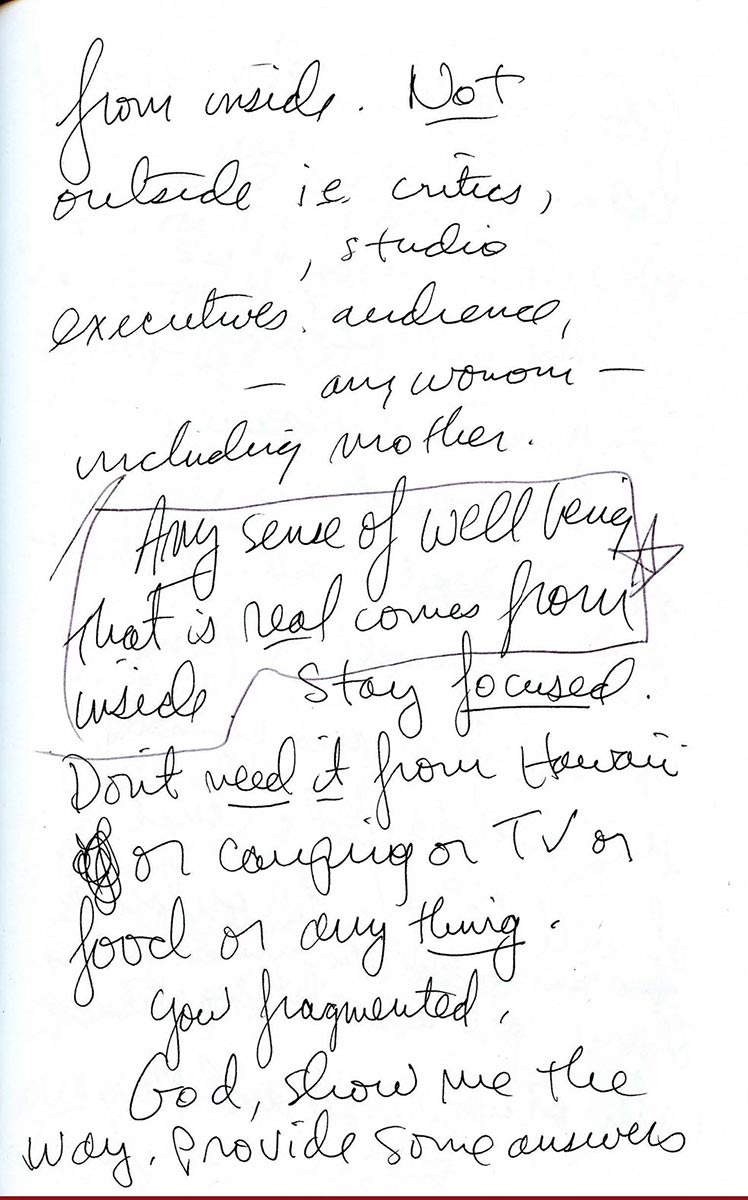 from inside. Not
outside ie. critics,
, studio
executives. audience,
— any
including mother.
Any sense of well being
that is real comes from
inside Stay focused.
Don't need it from Hawaii
or or TV or
food or any thing.
You fragmented,
God, show me the
way. Provide some answers